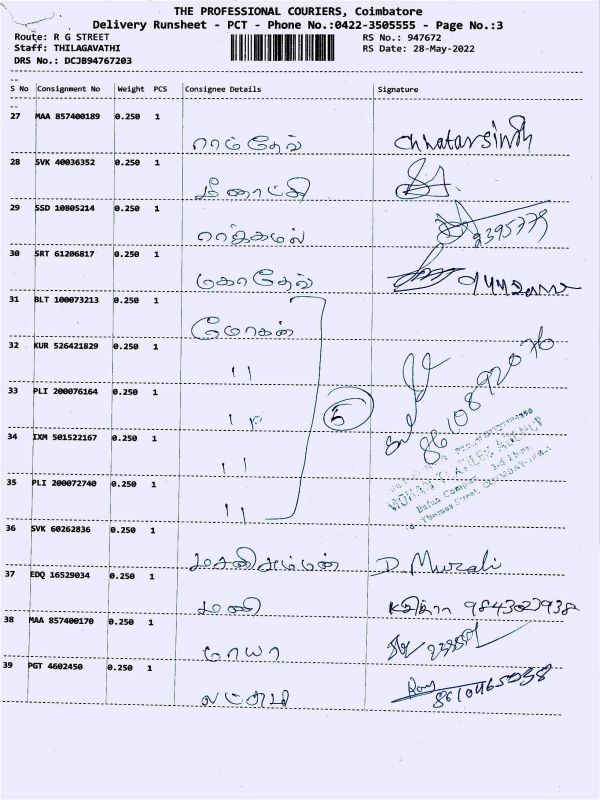 THE PROFESSIONAL COURIERS, Coimbatore
Delivery Runsheet - PCT - Phone No.:0422-3505555 - Page No.:3
Route: R G STREET RS No.: 947672
Staff: THILAGAVATHI RS Date: 28-May-2022
DRS No.: DCJB94767203
S No Consignment No Weight PCS Consignee Details Signature
27 MAA 857400189 0.250 1
ராம்தேவ் Chhatarsinh
28 SVK 40036352 0.250 1
மீனாட்சி
29 SSD 10805214 0.250 1
2395779
30 SRT 61206817 0.250 1
மகாதேவ்
31 BLT 100073213 0.250 1
மோகன்
32 KUR 526421829 0.250 1
"
33 PLI 200076164 0.250 1
" 5 8610892070
34 IXM 501522167 0.250 1
"
35 PLI 200072740 0.250 1
"
36 SVK 60262836 0.250 1
D. Murali
37 EDQ 16529034 0.250 1
மணி
38 MAA 857400170 0.250 1
மாயா
39 PGT 4602450 0.250 1
லட்சுமி